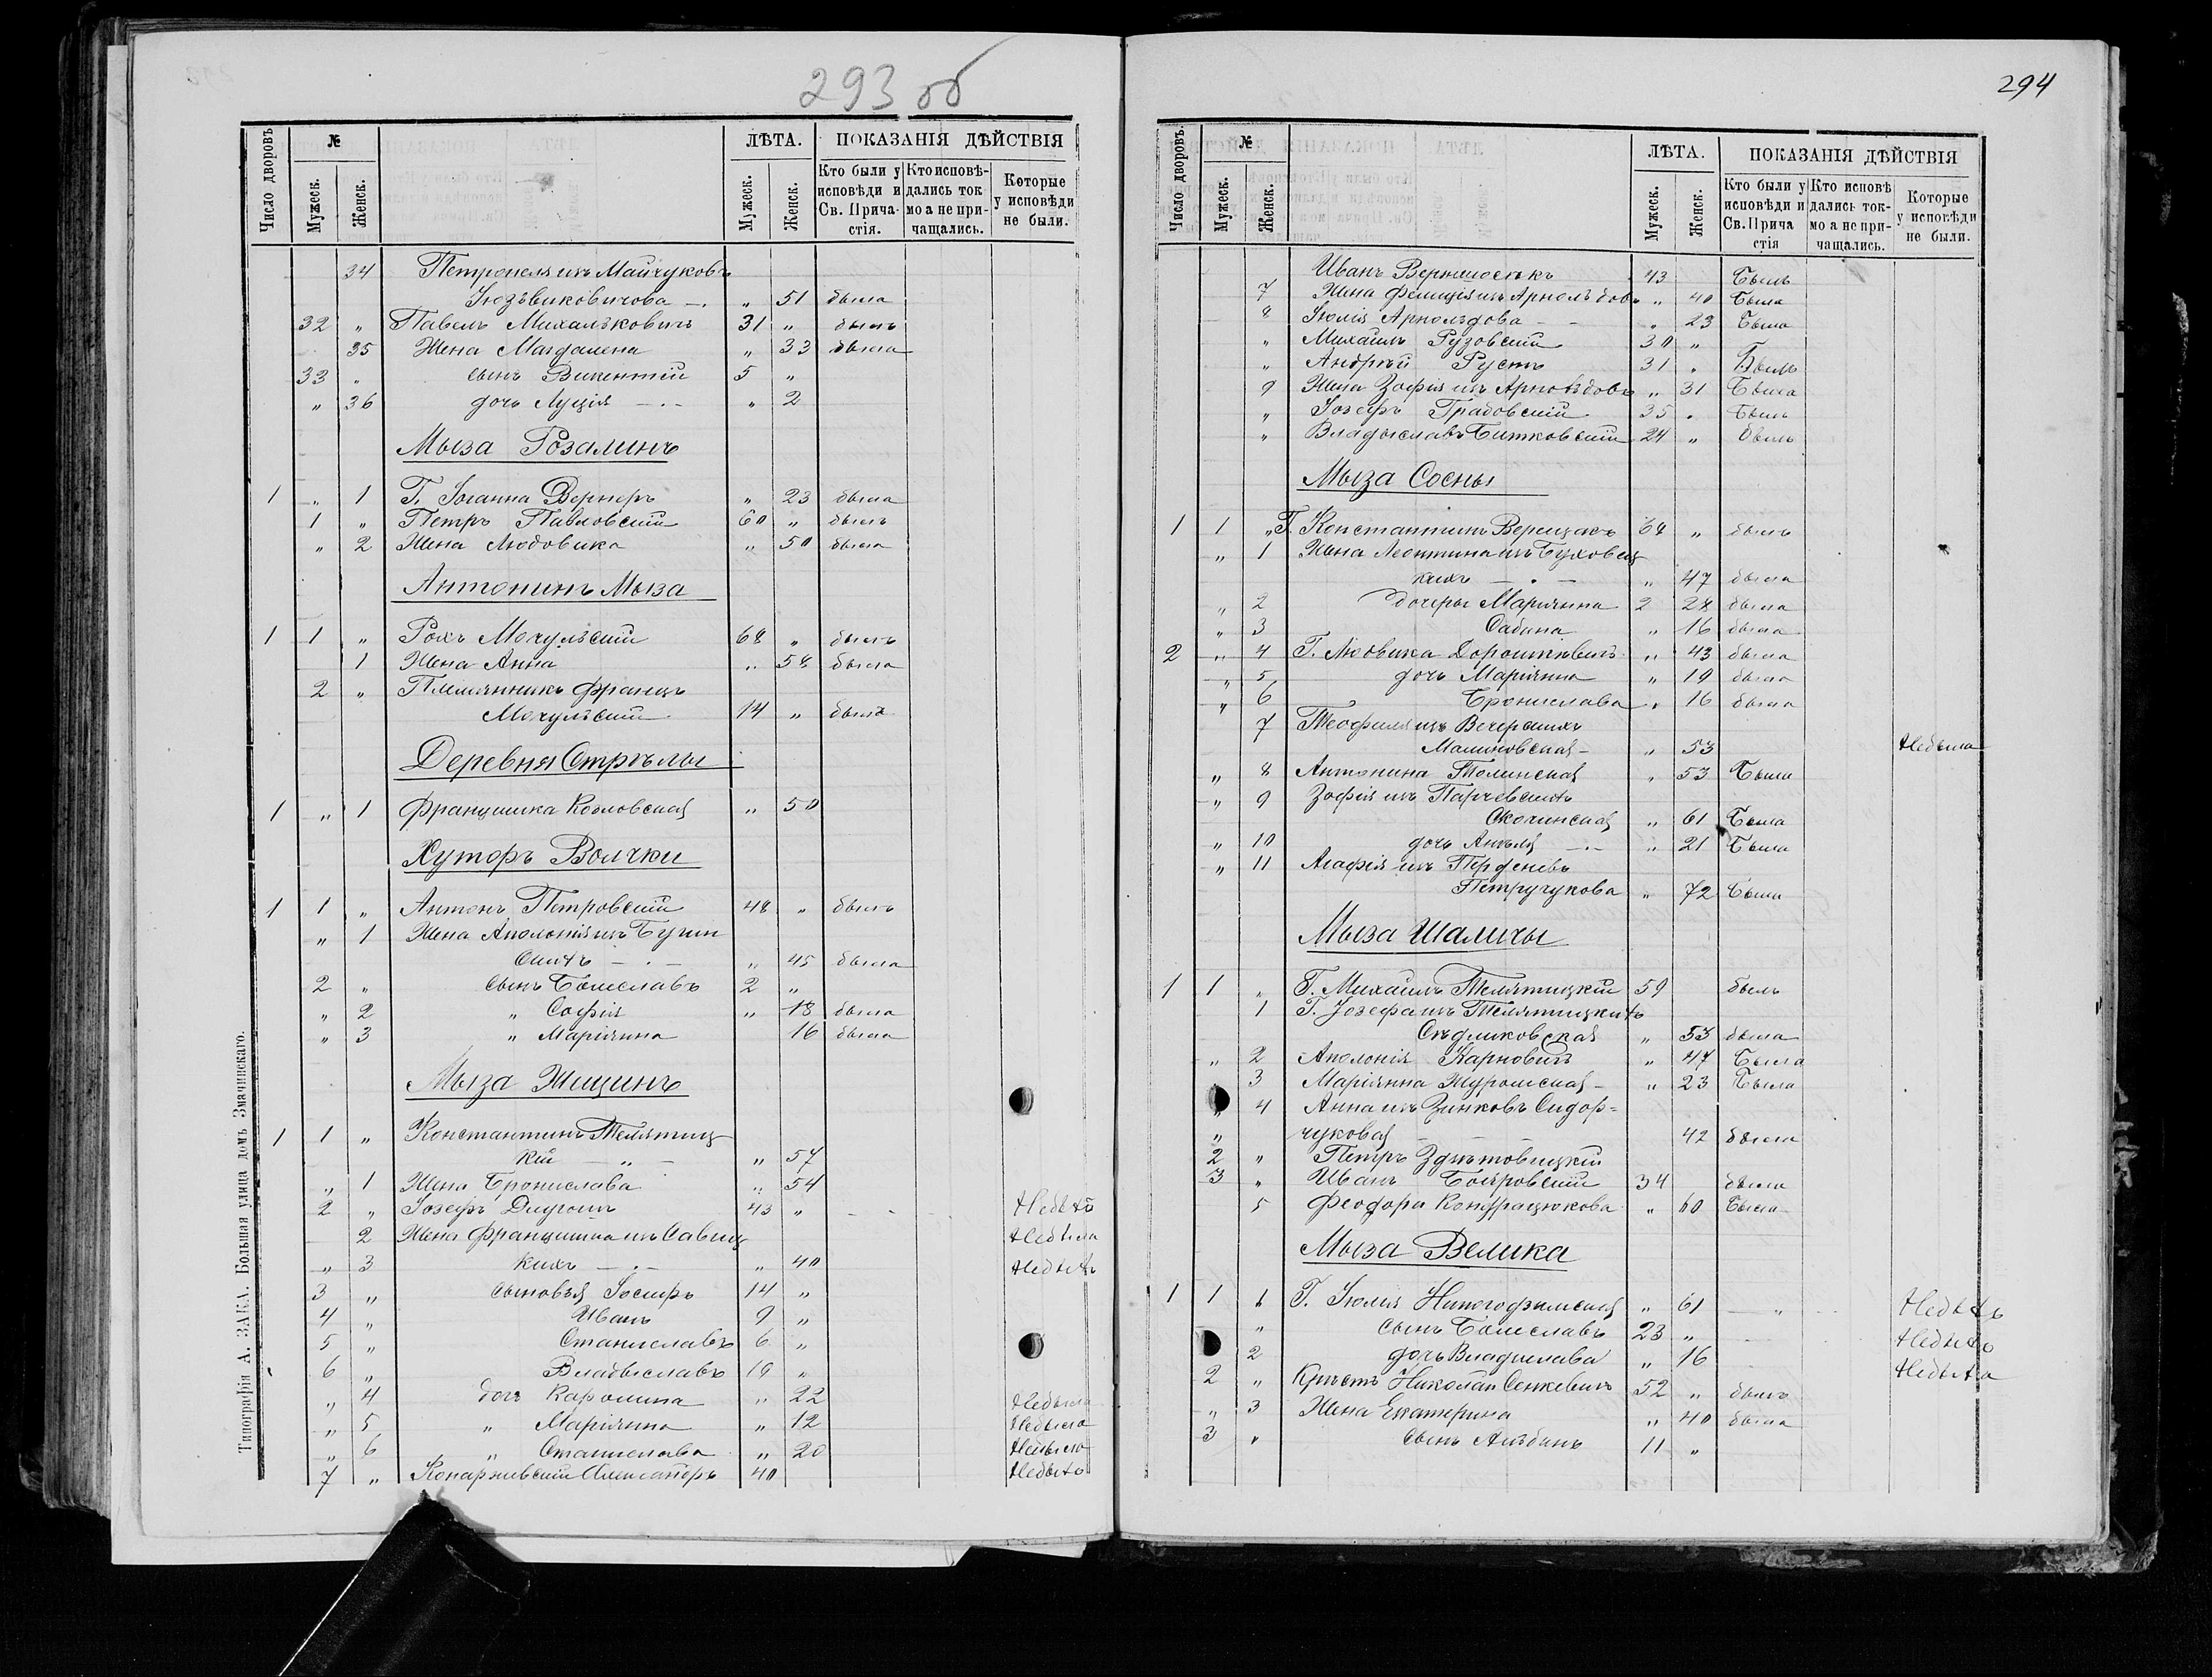 293 об
Число дворовъ
№
Мужеск.
Женск.
ЛѢТА.
Мужеск.
Женск.
ПОКАЗАНІЯ ДѢЙСТВІЯ
Кто были у исповѣди и Св. Прича-стія.
Кто исповѣ-дались ток мо а не при-чащались.
Которые у исповѣди не были.
34 Петронеля изъ Майчуковъ
Іюзѣвиковичова „ 51 была
32 „ Павелъ Михальковичъ 31 „ былъ
35 Жена Магдалена „ 33 была
33 „ сынъ Викентій 5 „
„ 36 дочь Луція „ 2
Мыза Розалинъ
1 „ 1 Г. Іоганна Вернеръ „ 23 была
1 „ Петръ Павловскій 60 „ былъ
„ 2 Жена Людовика „ 50 была
Антонинъ Мыза
1 1 „ Рохъ Мочульскій 68 „ былъ
1 Жена Анна „ 58 была
2 „ Племянникъ Францъ
Мочульскій 14 „ былъ
Деревня Стрѣлы
1 „ 1 Францишка Козловская „ 50
Хуторъ Волчки
1 1 „ Антонъ Петровскій 48 „ былъ
„ 1 Жена Аполонія изъ Бучин
скихъ „ 45 была
2 „ сынъ Болеславъ 2 „
„ 2 „ Софія „ 18 была
„ 3 „ Маріянна 16 была
Мыза Жищинъ
1 1 „ Константинъ Телятиц
кій „ „ 57
„ 1 Жена Бронислава „ 54
2 „ Іозефъ Длугошъ 43 „ Небылъ
2 Жена Францишка изъ Савиц Небыла
„ 3 кихъ „ 40 Небылъ
3 „ сыновья Іосифъ 14 „
4 „ Иванъ 9 „
5 „ Станиславъ 6 „
6 „ Владыславъ 19 „
„ 4 дочь Каролина „ 22 Небыла
„ 5 „ Маріянна „ 12 Небыла
„ 6 „ Станислава „ 20 Небыла
7 „ Конаржевскій Александръ 40 Небылъ
Типографія А. ЗАКА. Большая улица домъ Значинскаго.
294
Число дворовъ.
№
Мужеск.
Женск.
ЛѢТА.
Мужеск.
Женск.
ПОКАЗАНІЯ ДѢЙСТВІЯ
Кто были у исповѣди и Св. Прича стія
Кто исповѣ дались ток-мо а не при-чащались.
Которые у исповѣди не были.
Иванъ 43 Былъ
7 Жена Фелиція изъ Арнольдовъ „ 40 Была
8 Іюлія Арнольдова „ 23 Была
„ Михаилъ Рузовскій 30 „
„ Андрей Рустъ 31 „ Былъ
9 Жена Зофія изъ Арнольдовъ „ 31 Была
„ Іозефъ Грабовскій 35 „ Былъ
„ Владыславъ Битковскій 24 „ былъ
Мыза Сосны
1 1 „ Г. Константинъ Верещакъ 64 „ былъ
„ 1 Жена Леонтина изъ Буховец
кихъ „ 47 была
„ 2 дочери Маріянна 2 28 была
„ 3 Сабина „ 16 была
2 „ 4 Г. Людовика Дорошкевичъ „ 43 была
„ 5 дочь Маріянна „ 19 была
„ 6 Бронислава „ 16 была
7 Теофиля изъ Вечерскихъ
Малиновская „ 53 Небыла
„ 8 Антонина Толинская „ 53 Была
„ 9 Зофія изъ Парчевскихъ
Скочинская „ 61 Была
„ 10 дочь Анеля „ 21 Была
„ 11 Агафія изъ
Петручукова „ 72 Была
Мыза Шаличы
1 1 „ Г. Михаилъ Телятицкій 59 былъ
1 Г. Іозефа изъ Телятицкихъ
Сѣдликовская „ 53 была
„ 2 Аполонія Карновичъ „ 47 Была
3 Маріянна Журомская „ 23 Была
„ 4 Анна изъ Зинковъ Сидор=
„ чуковая 42 была
2 „ Петръ Здитовецкій
3 „ Иванъ Бояровскій 34 была
5 Феодора Кондрацюкова „ 60 Была
Мыза Велика
1 1 1 Г. Іюлія „ 61 „ Небылъ
„ сынъ Болеславъ 23 „ Небылъ
2 дочь Владислава „ 16 Небыла
2 „ Николай Сенкевичъ 52 „ былъ
„ 3 Жена Екатерина „ 40 была
3 „ сынъ Альбинъ 11 „